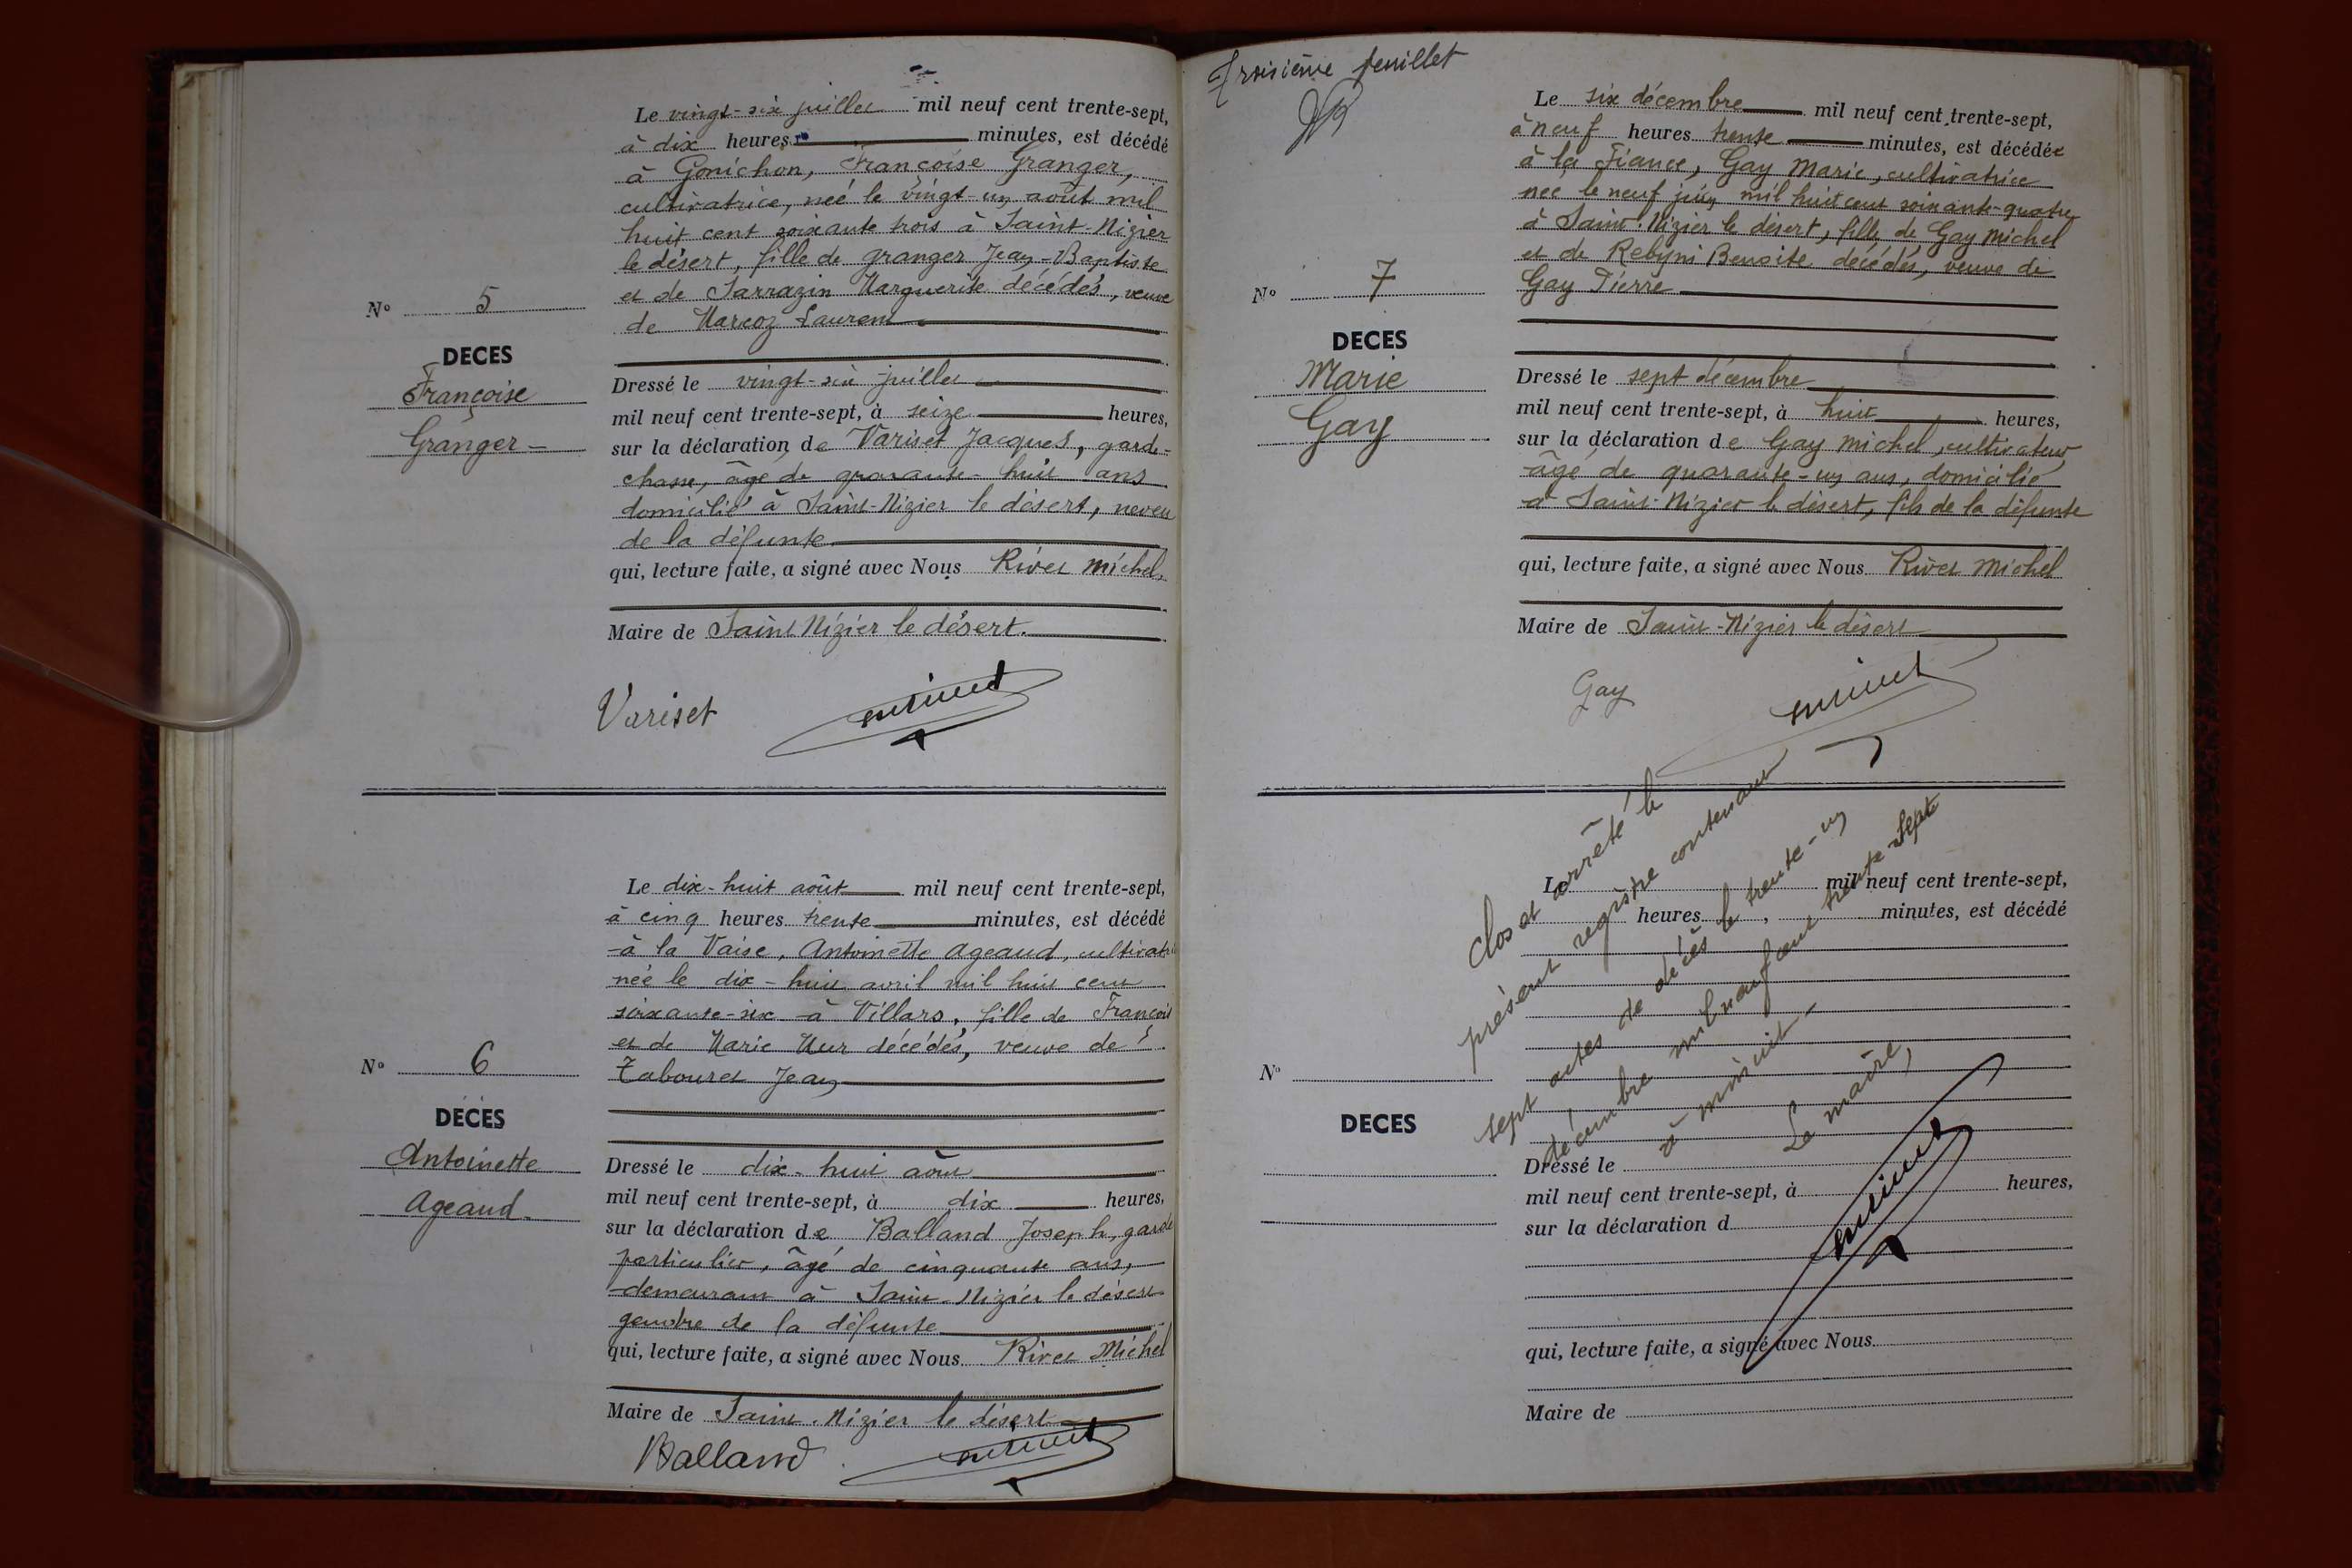 Le vingt-six juillet mil neuf cent trente-sept,
à dix heures minutes, est décédé
à Gonichon, Françoise Granger,
cultivatrice, née le vingt-un août mil
huit cent soixante trois à Saint-Nizier
le désert, fille de Granger Jean-Baptiste
et de Sarrazin Marguerite décédés, veuve
de Marcoz Laurent
N° 5
DECES
Françoise
Granger
Dressé le vingt-six juillet
mil neuf cent trente-sept, à seize heures,
sur la déclaration de Variset Jacques, garde-
chasse, âgé de quarante-huit ans
domicilié à Saint-Nizier le désert, neveu
de la défunte
qui, lecture faite, a signé avec Nous Rivet Michel,
Maire de Saint Nizier le désert.
Variset
Le dix-huit août mil neuf cent trente-sept,
à cinq heures trente minutes, est décédé
à la Vaise, Antoinette Ageaud, cultivatrice
née le dix-huit avril mil huit cent
soixante-six à Villars, fille de François
et de Marie Mur décédés, veuve de
Tabouret Jean
N° 6
DÉCÈS
Antoinette
Ageaud
Dressé le dix-huit août
mil neuf cent trente-sept, à dix heures,
sur la déclaration de Balland Joseph, garde
particulier, âgé de cinquante ans,
demeurant à Saint-Nizier le désert
gendre de la défunte
qui, lecture faite, a signé avec Nous Rivet Michel
Maire de Saint-Nizier le désert
Balland
Troisième feuillet
Le six décembre mil neuf cent trente-sept,
à neuf heures trente minutes, est décédée
à la Fiance, Gay Marie, cultivatrice
née le neuf juin mil huit cent soixante-quatre
à Saint-Nizier le désert, fille de Gay Michel
et de Benoite décédés, veuve de
Gay Pierre
N° 7
DECES
Marie
Gay
Dressé le sept décembre
mil neuf cent trente-sept, à huit heures,
sur la déclaration de Gay Michel, cultivateur,
âgé de quarante-un ans, domicilié
à Saint-Nizier le désert, fils de la défunte
qui, lecture faite, a signé avec Nous Rivet Michel
Maire de Saint-Nizier le désert
Gay
Clos et arrêté le
présent registre contenant
sept actes de décès le trente-un
décembre mil neuf cent trente-sept
à minuit.
Le maire,
Le mil neuf cent trente-sept,
heures, minutes, est décédé
N°
DECES
Dressé le
mil neuf cent trente-sept, à heures,
sur la déclaration d
qui, lecture faite, a signé avec Nous
Maire de